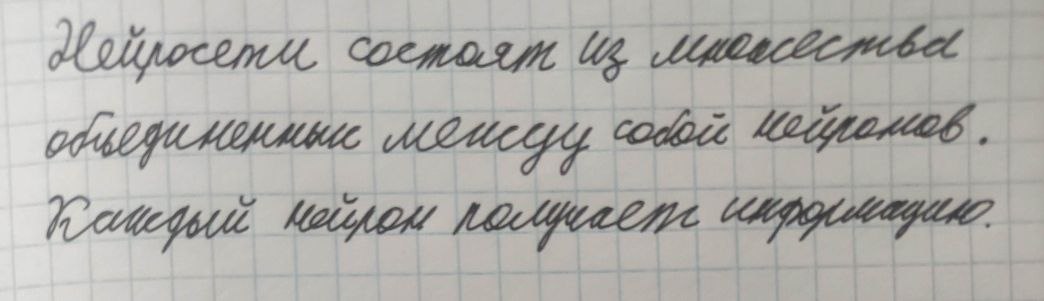 Нейросети состоят из множества
объединенных между собой нейронов.
Каждый нейрон получает информацию.